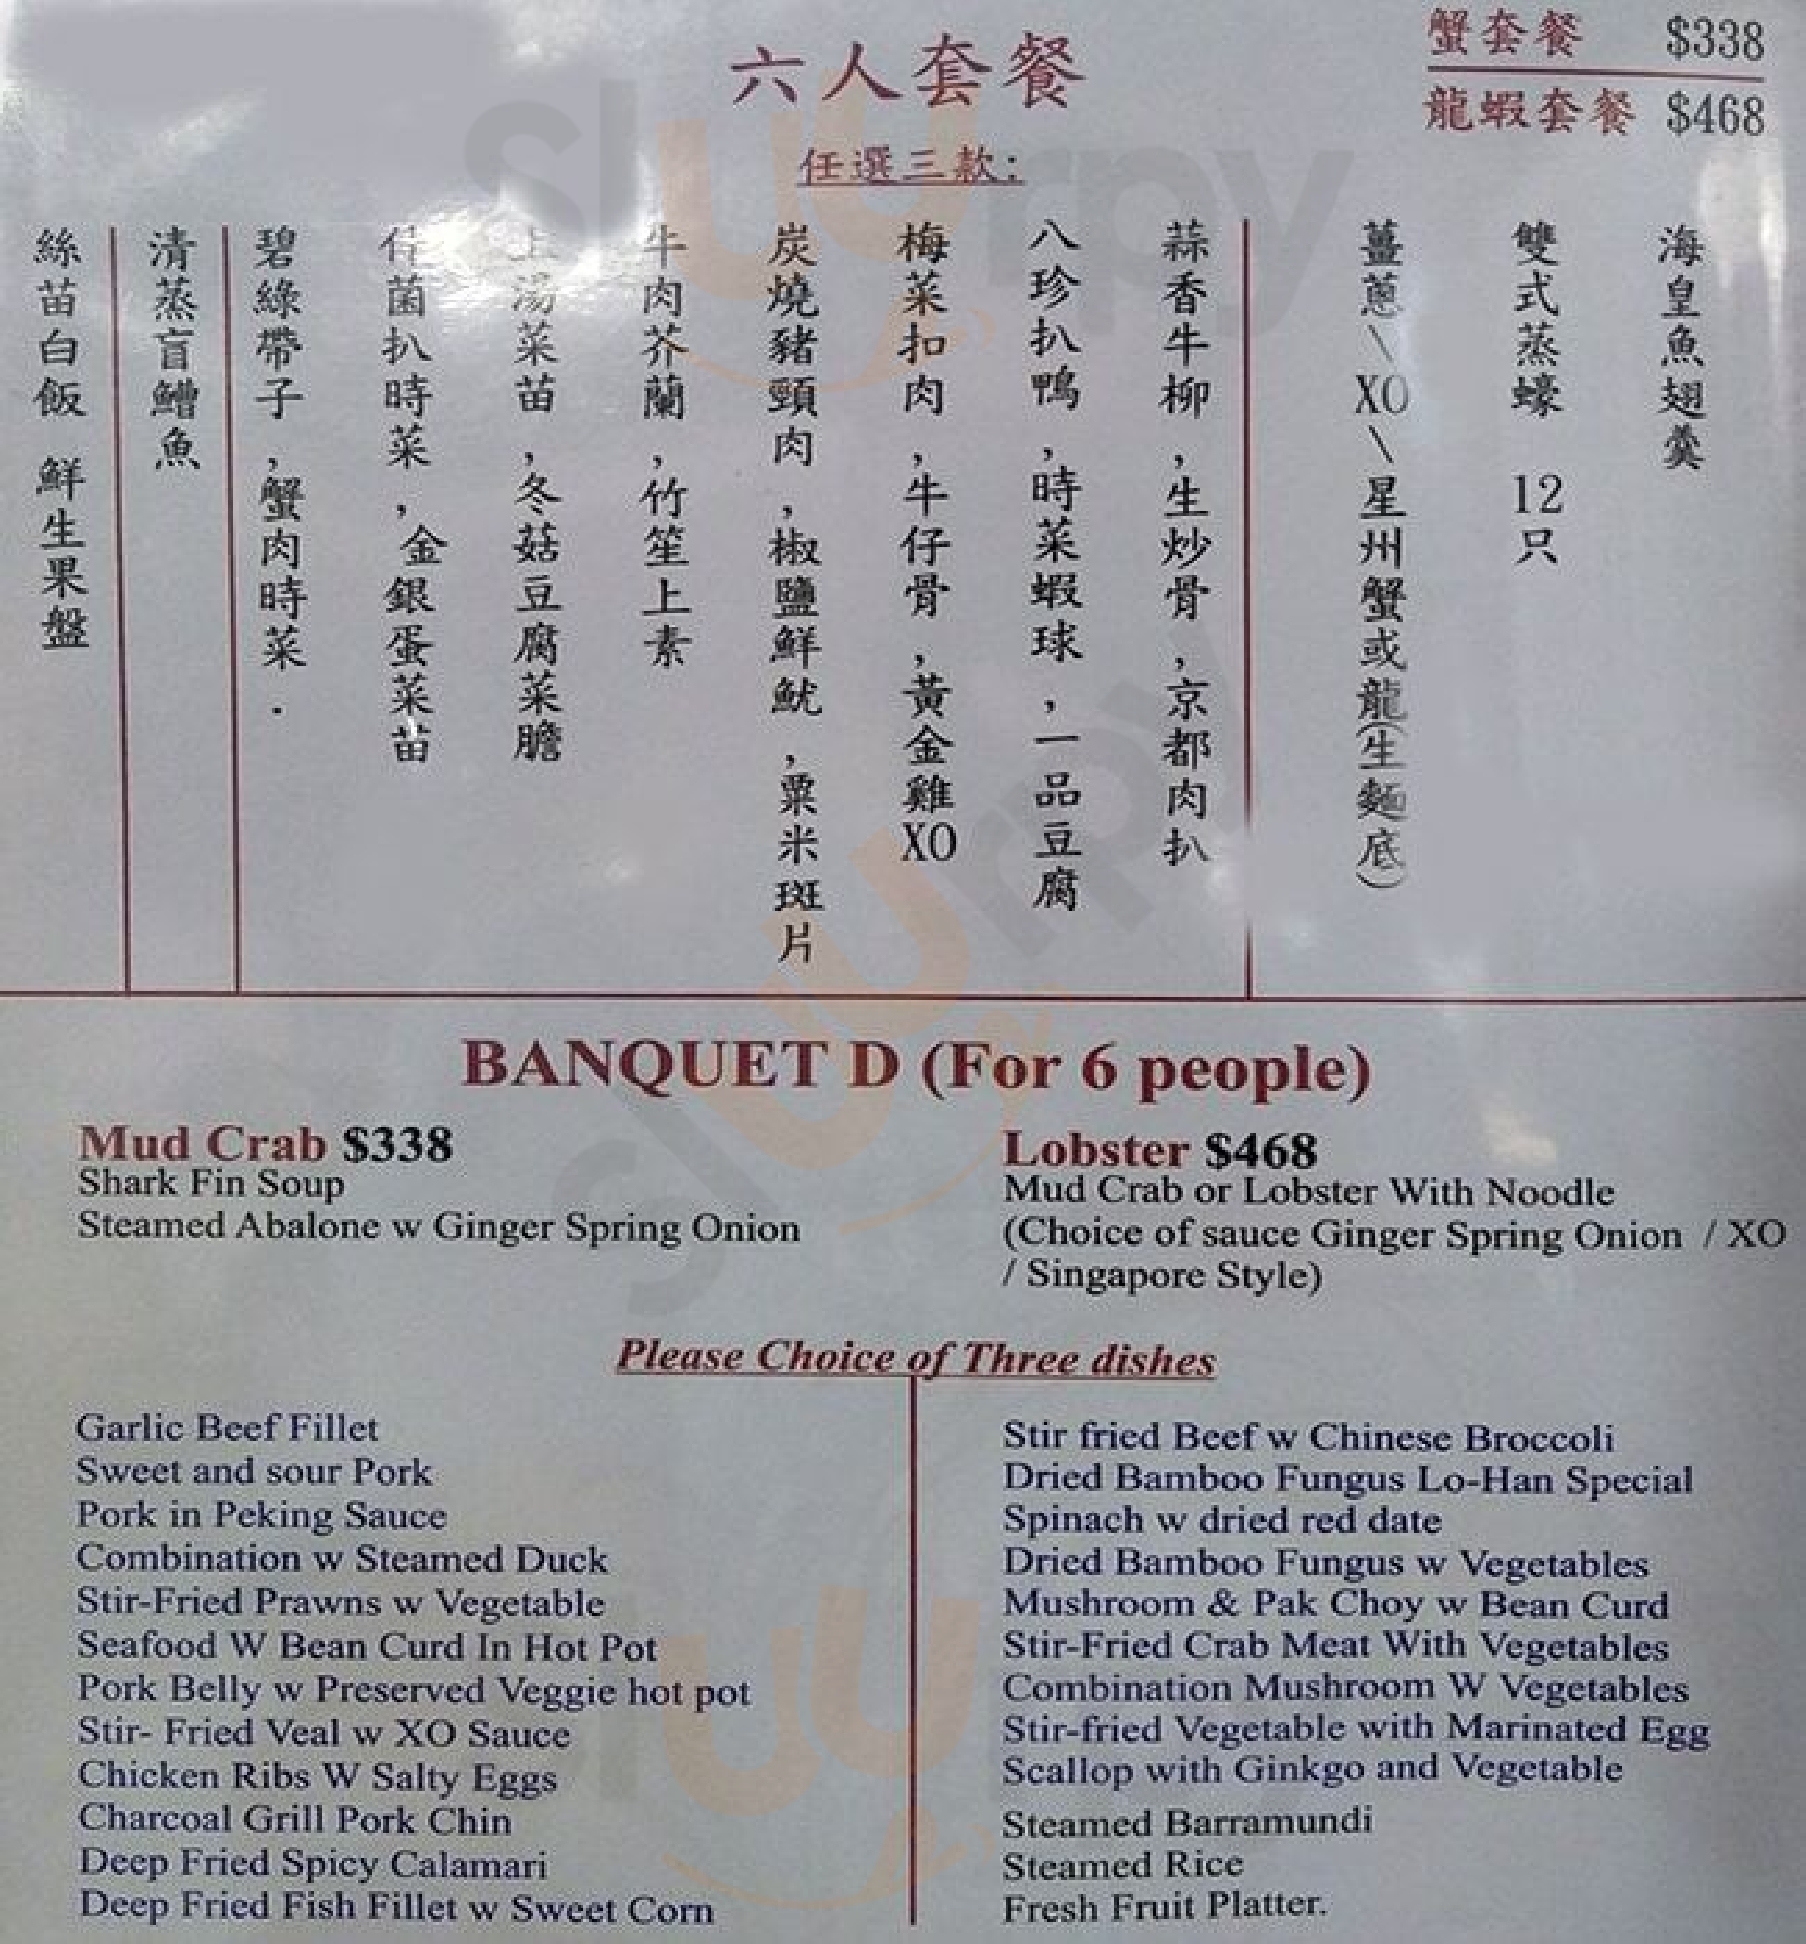 六人套餐
蟹套餐 $338
龍蝦套餐 $468
任選三款:
海皇魚翅羹
雙式蒸蠔 12只
薑蔥\XO\星州蟹或龍(生麵底)
蒜香牛柳,生炒骨,京都肉扒
八珍扒鴨,時菜蝦球,一品豆腐
梅菜扣肉,牛仔骨,黃金雞XO
炭燒豬頸肉,椒鹽鮮魷,粟米斑片
牛肉芥蘭,竹笙上素
上湯菜苗,冬菇豆腐菜膽
菌扒時菜,金銀蛋菜苗
碧綠帶子,蟹肉時菜.
清蒸盲鰽魚
絲苗白飯 鮮生果盤
BANQUET D (For 6 people)
Mud Crab $338
Shark Fin Soup
Steamed Abalone w Ginger Spring Onion
Lobster $468
Mud Crab or Lobster With Noodle
(Choice of sauce Ginger Spring Onion / XO
/ Singapore Style)
Please Choice of Three dishes
Garlic Beef Fillet
Sweet and sour Pork
Pork in Peking Sauce
Combination w Steamed Duck
Stir-Fried Prawns w Vegetable
Seafood W Bean Curd In Hot Pot
Pork Belly w Preserved Veggie hot pot
Stir- Fried Veal w XO Sauce
Chicken Ribs W Salty Eggs
Charcoal Grill Pork Chin
Deep Fried Spicy Calamari
Deep Fried Fish Fillet w Sweet Corn
Stir fried Beef w Chinese Broccoli
Dried Bamboo Fungus Lo-Han Special
Spinach w dried red date
Dried Bamboo Fungus w Vegetables
Mushroom & Pak Choy w Bean Curd
Stir-Fried Crab Meat With Vegetables
Combination Mushroom W Vegetables
Stir-fried Vegetable with Marinated Egg
Scallop with Ginkgo and Vegetable
Steamed Barramundi
Steamed Rice
Fresh Fruit Platter.
slurpy
slurpy
slurpy